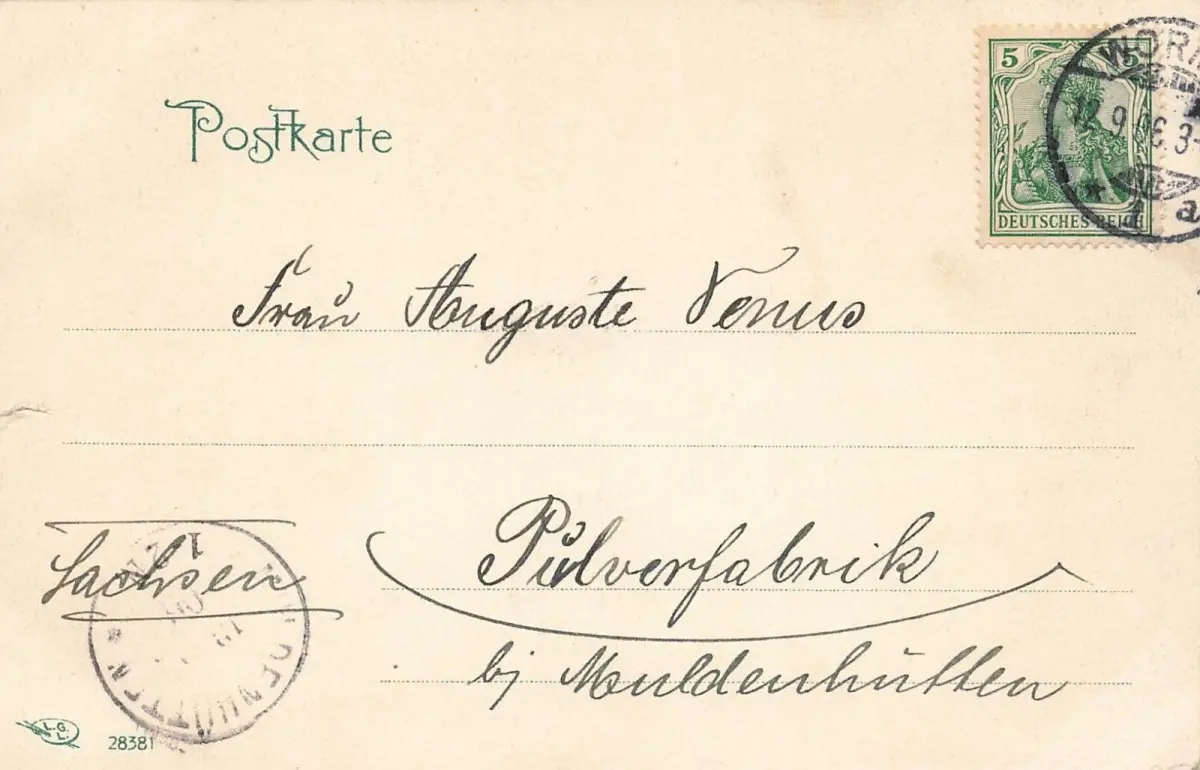 Postkarte
5 5
DEUTSCHES REICH
WORM
12.9.06.3-
* a
Frau Auguste Venus
Sachsen
Pulverfabrik
bj Muldenhütten
LDENHÜTTEN *
L.G.
L.
28381